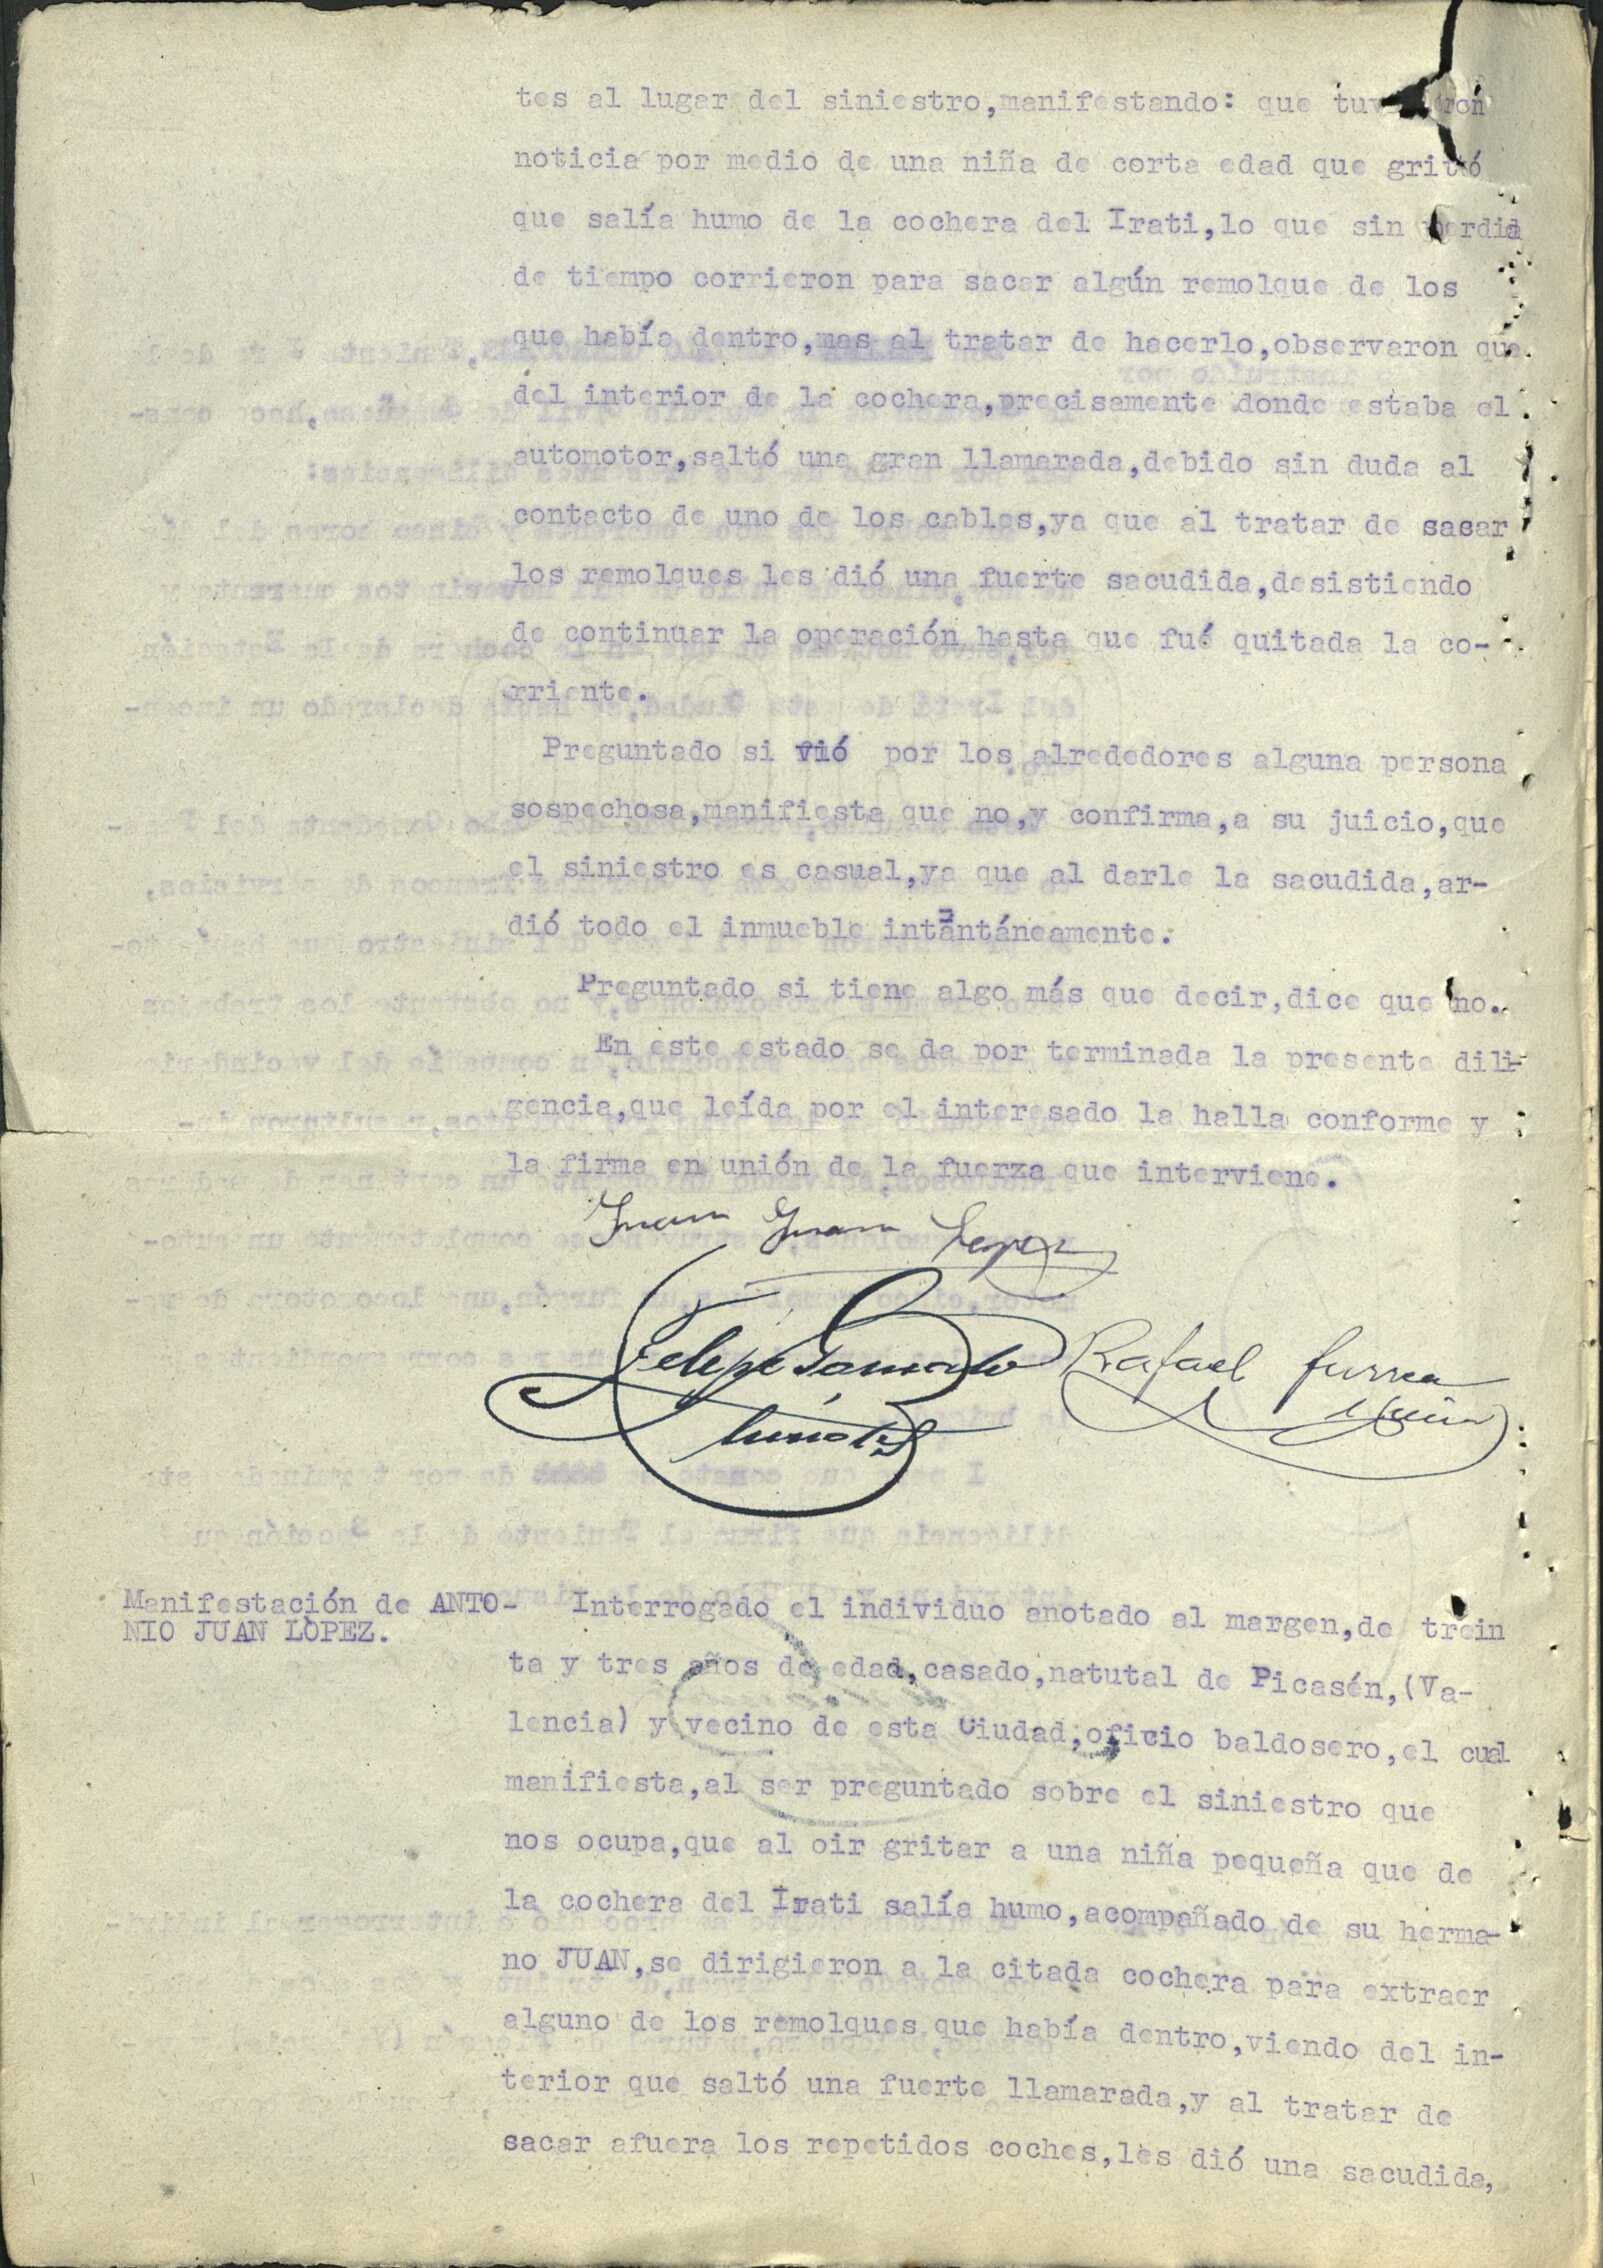 tes al lugar del siniestro,manifestando: que tuvieron
noticia por medio de una niña de corta edad que grittó
que salía humo de la cochera del Irati,lo que sin perdid
de tiempo corrieron para sacar algún remolque de los
que había dentro,mas al tratar de hacerlo,observaron que
del interior de la cochera,precisamente donde estaba el
automotor,saltó una gran llamarada,debido sin duda al
contacto de uno de los cables,ya que al tratar de sacar
los remolques les dió una fuerte sacudida,desistiendo
de continuar la operación hasta que fué quitada la co-
rriente.
Preguntado si vió por los alrededores alguna persona
sospechosa,manifiesta que no,y confirma,a su juicio,que
el siniestro es casual,ya que al darle la sacudida,ar-
dió todo el inmueble intantáneamente.
Preguntado si tiene algo más que decir,dice que no.
En este estado se da por terminada la presente dili-
gencia,que leída por el interesado la halla conforme y
la firma en unión de la fuerza que interviene.
Juan Juan Lopez
Felipe
Rafael
Manifestación de ANTO-
NIO JUAN LÒPEZ.
Interrogado el individuo anotado al margen,de trein
ta y tres años de edad,casado,natutal de Picasén,(Va-
lencia) y vecino de esta Ciudad,oficio baldosero,el cual
manifiesta,al ser preguntado sobre el siniestro que
nos ocupa,que al oir gritar a una niña pequeña que de
la cochera del Irati salía humo,acompañado de su herma-
no JUAN,se dirigieron a la citada cochera para extraer
alguno de los remolques que había dentro,viendo del in-
terior que saltó una fuerte llamarada,y al tratar de
sacar afuera los repetidos coches,les dió una sacudida,